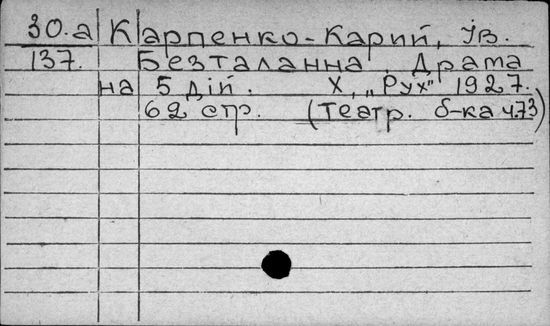 30.а Карпенко-Карий, Ів.
137. Безталанна. Драма
на 5 дій. Х, „Рух" 1927.
62 стр. (Театр. б-ка ч.73)